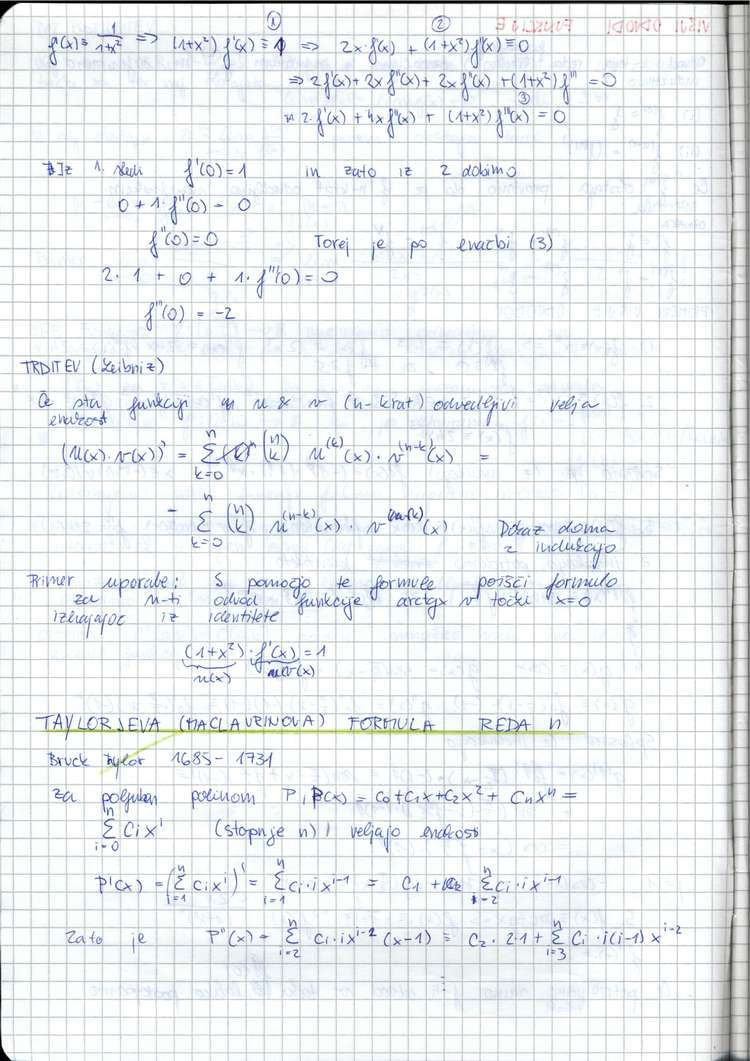 ①                    ②
f'(x) = 1/(1+x²) => (1+x²) f'(x) ≡ 1 => 2x·f'(x) + (1+x²) f''(x) ≡ 0
=> 2f'(x) + 2x f''(x) + 2x f''(x) + (1+x²) f''' = 0
③
2·f'(x) + 4x f''(x) + (1+x²) f'''(x) = 0
Iz 1. sledi f'(0) = 1 in zato iz 2 dobimo
0 + 1·f''(0) = 0
f''(0) = 0 Torej je po enačbi (3)
2·1 + 0 + 1·f'''(0) = 0
f'''(0) = -2
TRDITEV (Leibniz)
Če sta funkciji u & v (n-krat) odvedljivi velja
enakost
(u(x)·v(x))⁾ = ∑_{k=0}^{n} (n k) u^(k)(x)·v^(n-k)(x) =
= ∑_{k=0}^{n} (n k) u^(n-k)(x)·v^(k)(x) Dokaz doma
z indukcijo
Primer uporabe: S pomočjo te formule poišči formulo
za n-ti odvod funkcije arctgx v točki x=0
izhajajoč iz identitete
(1+x²)·f'(x) = 1
u(x) v(x)
TAYLORJEVA (MACLAURINOVA) FORMULA REDA n
Bruck Taylor 1685 - 1731
Za poljuben polinom P, P(x) = c₀ + c₁x + c₂x² + cₙxⁿ =
∑_{i=0}^{n} cᵢxⁱ (stopnje n) veljajo enakosti
P'(x) = (∑_{i=1}^{n} cᵢxⁱ)' = ∑_{i=1}^{n} cᵢ·i x^{i-1} = c₁ + ∑_{i=2}^{n} cᵢ·i x^{i-1}
Zato je P''(x) = ∑_{i=2}^{n} cᵢ·i x^{i-2} (x-1) = c₂·2·1 + ∑_{i=3}^{n} cᵢ·i(i-1) x^{i-2}
⋮